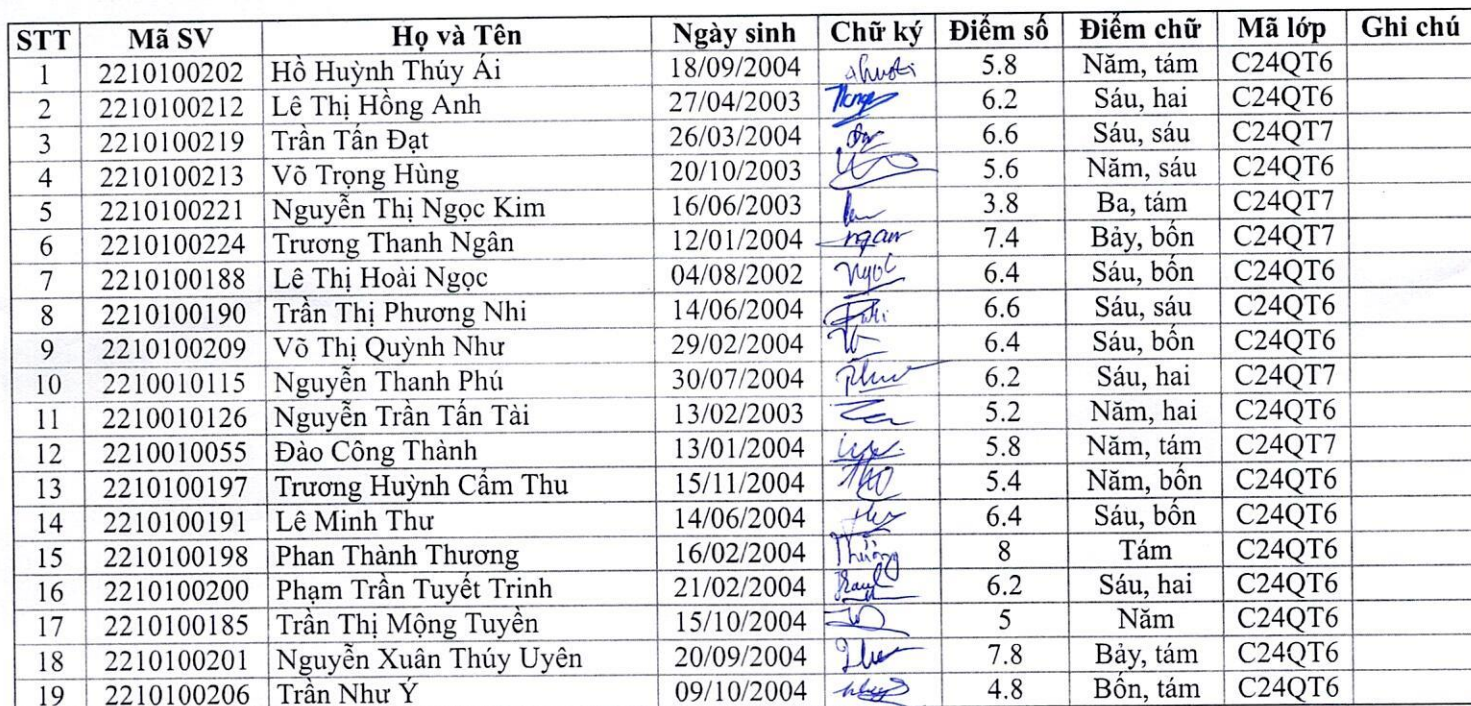 STT Mã SV Họ và Tên Ngày sinh Chữ ký Điểm số Điểm chữ Mã lớp Ghi chú
1 2210100202 Hồ Huỳnh Thúy Ái 18/09/2004 5.8 Năm, tám C24QT6
2 2210100212 Lê Thị Hồng Anh 27/04/2003 6.2 Sáu, hai C24QT6
3 2210100219 Trần Tấn Đạt 26/03/2004 6.6 Sáu, sáu C24QT7
4 2210100213 Võ Trọng Hùng 20/10/2003 5.6 Năm, sáu C24QT6
5 2210100221 Nguyễn Thị Ngọc Kim 16/06/2003 3.8 Ba, tám C24QT7
6 2210100224 Trương Thanh Ngân 12/01/2004 ngân 7.4 Bảy, bốn C24QT7
7 2210100188 Lê Thị Hoài Ngọc 04/08/2002 Ngọc 6.4 Sáu, bốn C24QT6
8 2210100190 Trần Thị Phương Nhi 14/06/2004 6.6 Sáu, sáu C24QT6
9 2210100209 Võ Thị Quỳnh Như 29/02/2004 6.4 Sáu, bốn C24QT6
10 2210010115 Nguyễn Thanh Phú 30/07/2004 6.2 Sáu, hai C24QT7
11 2210010126 Nguyễn Trần Tấn Tài 13/02/2003 5.2 Năm, hai C24QT6
12 2210010055 Đào Công Thành 13/01/2004 5.8 Năm, tám C24QT7
13 2210100197 Trương Huỳnh Cẩm Thu 15/11/2004 5.4 Năm, bốn C24QT6
14 2210100191 Lê Minh Thư 14/06/2004 6.4 Sáu, bốn C24QT6
15 2210100198 Phan Thành Thương 16/02/2004 8 Tám C24QT6
16 2210100200 Phạm Trần Tuyết Trinh 21/02/2004 6.2 Sáu, hai C24QT6
17 2210100185 Trần Thị Mộng Tuyền 15/10/2004 5 Năm C24QT6
18 2210100201 Nguyễn Xuân Thúy Uyên 20/09/2004 7.8 Bảy, tám C24QT6
19 2210100206 Trần Như Ý 09/10/2004 4.8 Bốn, tám C24QT6